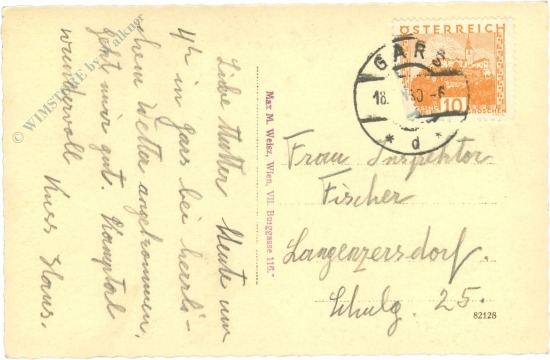 Liebe Mutter Heute um
4h in Gars bei herrli-
chem Wetter angekommen,
geht mir gut. Kamptal
wundervoll Kuss Hans.
© WIMSTORE by Falkner
Max M. Weisz, Wien, VII. Burggasse 116.
ÖSTERREICH
10
GROSCHEN
GARS
18. 30 -6
* d *
Frau Inspektor
Fischer
Langenzersdorf.
Schulg. 25.
82128